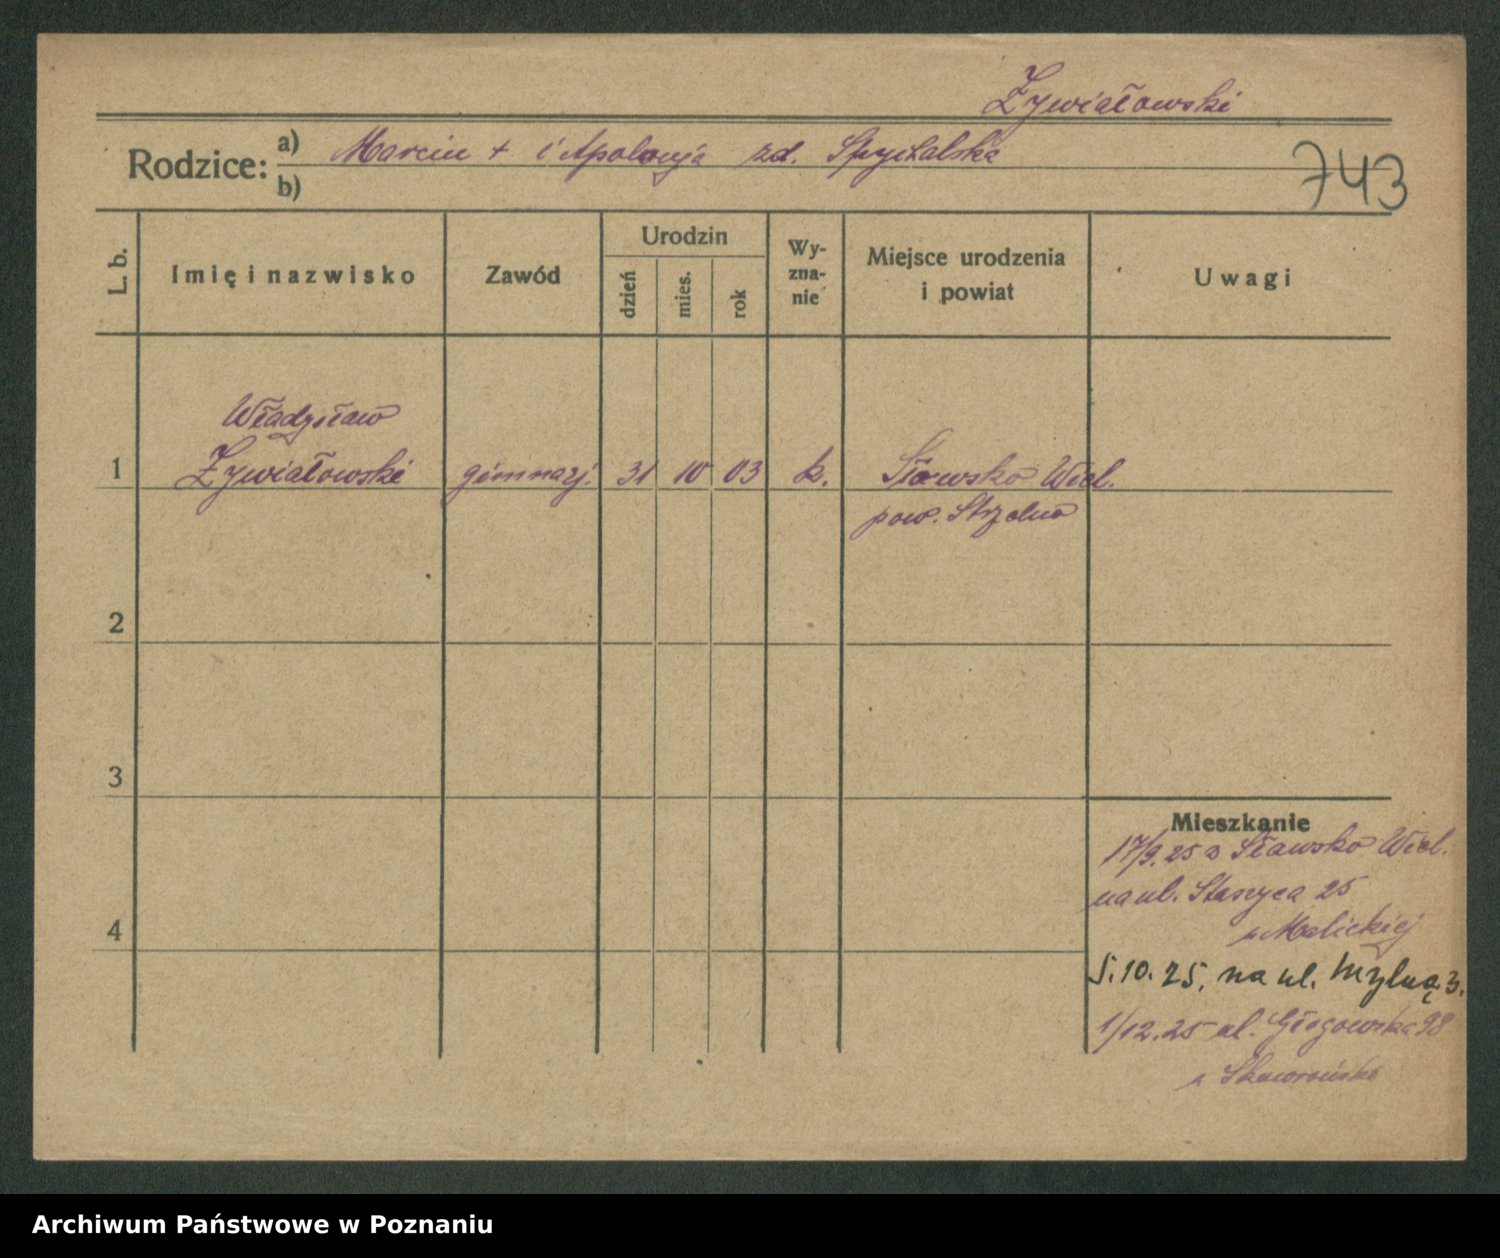 Żywiałowski
Rodzice: a) Marcin + i Apolonja zd. Spychalska
b)
743
L. b.
Imię i nazwisko
Zawód
Urodzin
dzień
mies.
rok
Wy-
zna-
nie
Miejsce urodzenia
i powiat
Uwagi
Władysław
1 Żywiałowski gimnazj. 31 10 03 k. Sławsko Wiel.
pow. Strzelno
2
3
4
Mieszkanie
17/9.25 z Sławsko Wiel.
na ul. Staszyca 25
u Malickiej
5.10.25. na ul. Mylną 3.
1/12.25 ul. Głogowska 98
u Skowrońska
Archiwum Państwowe w Poznaniu